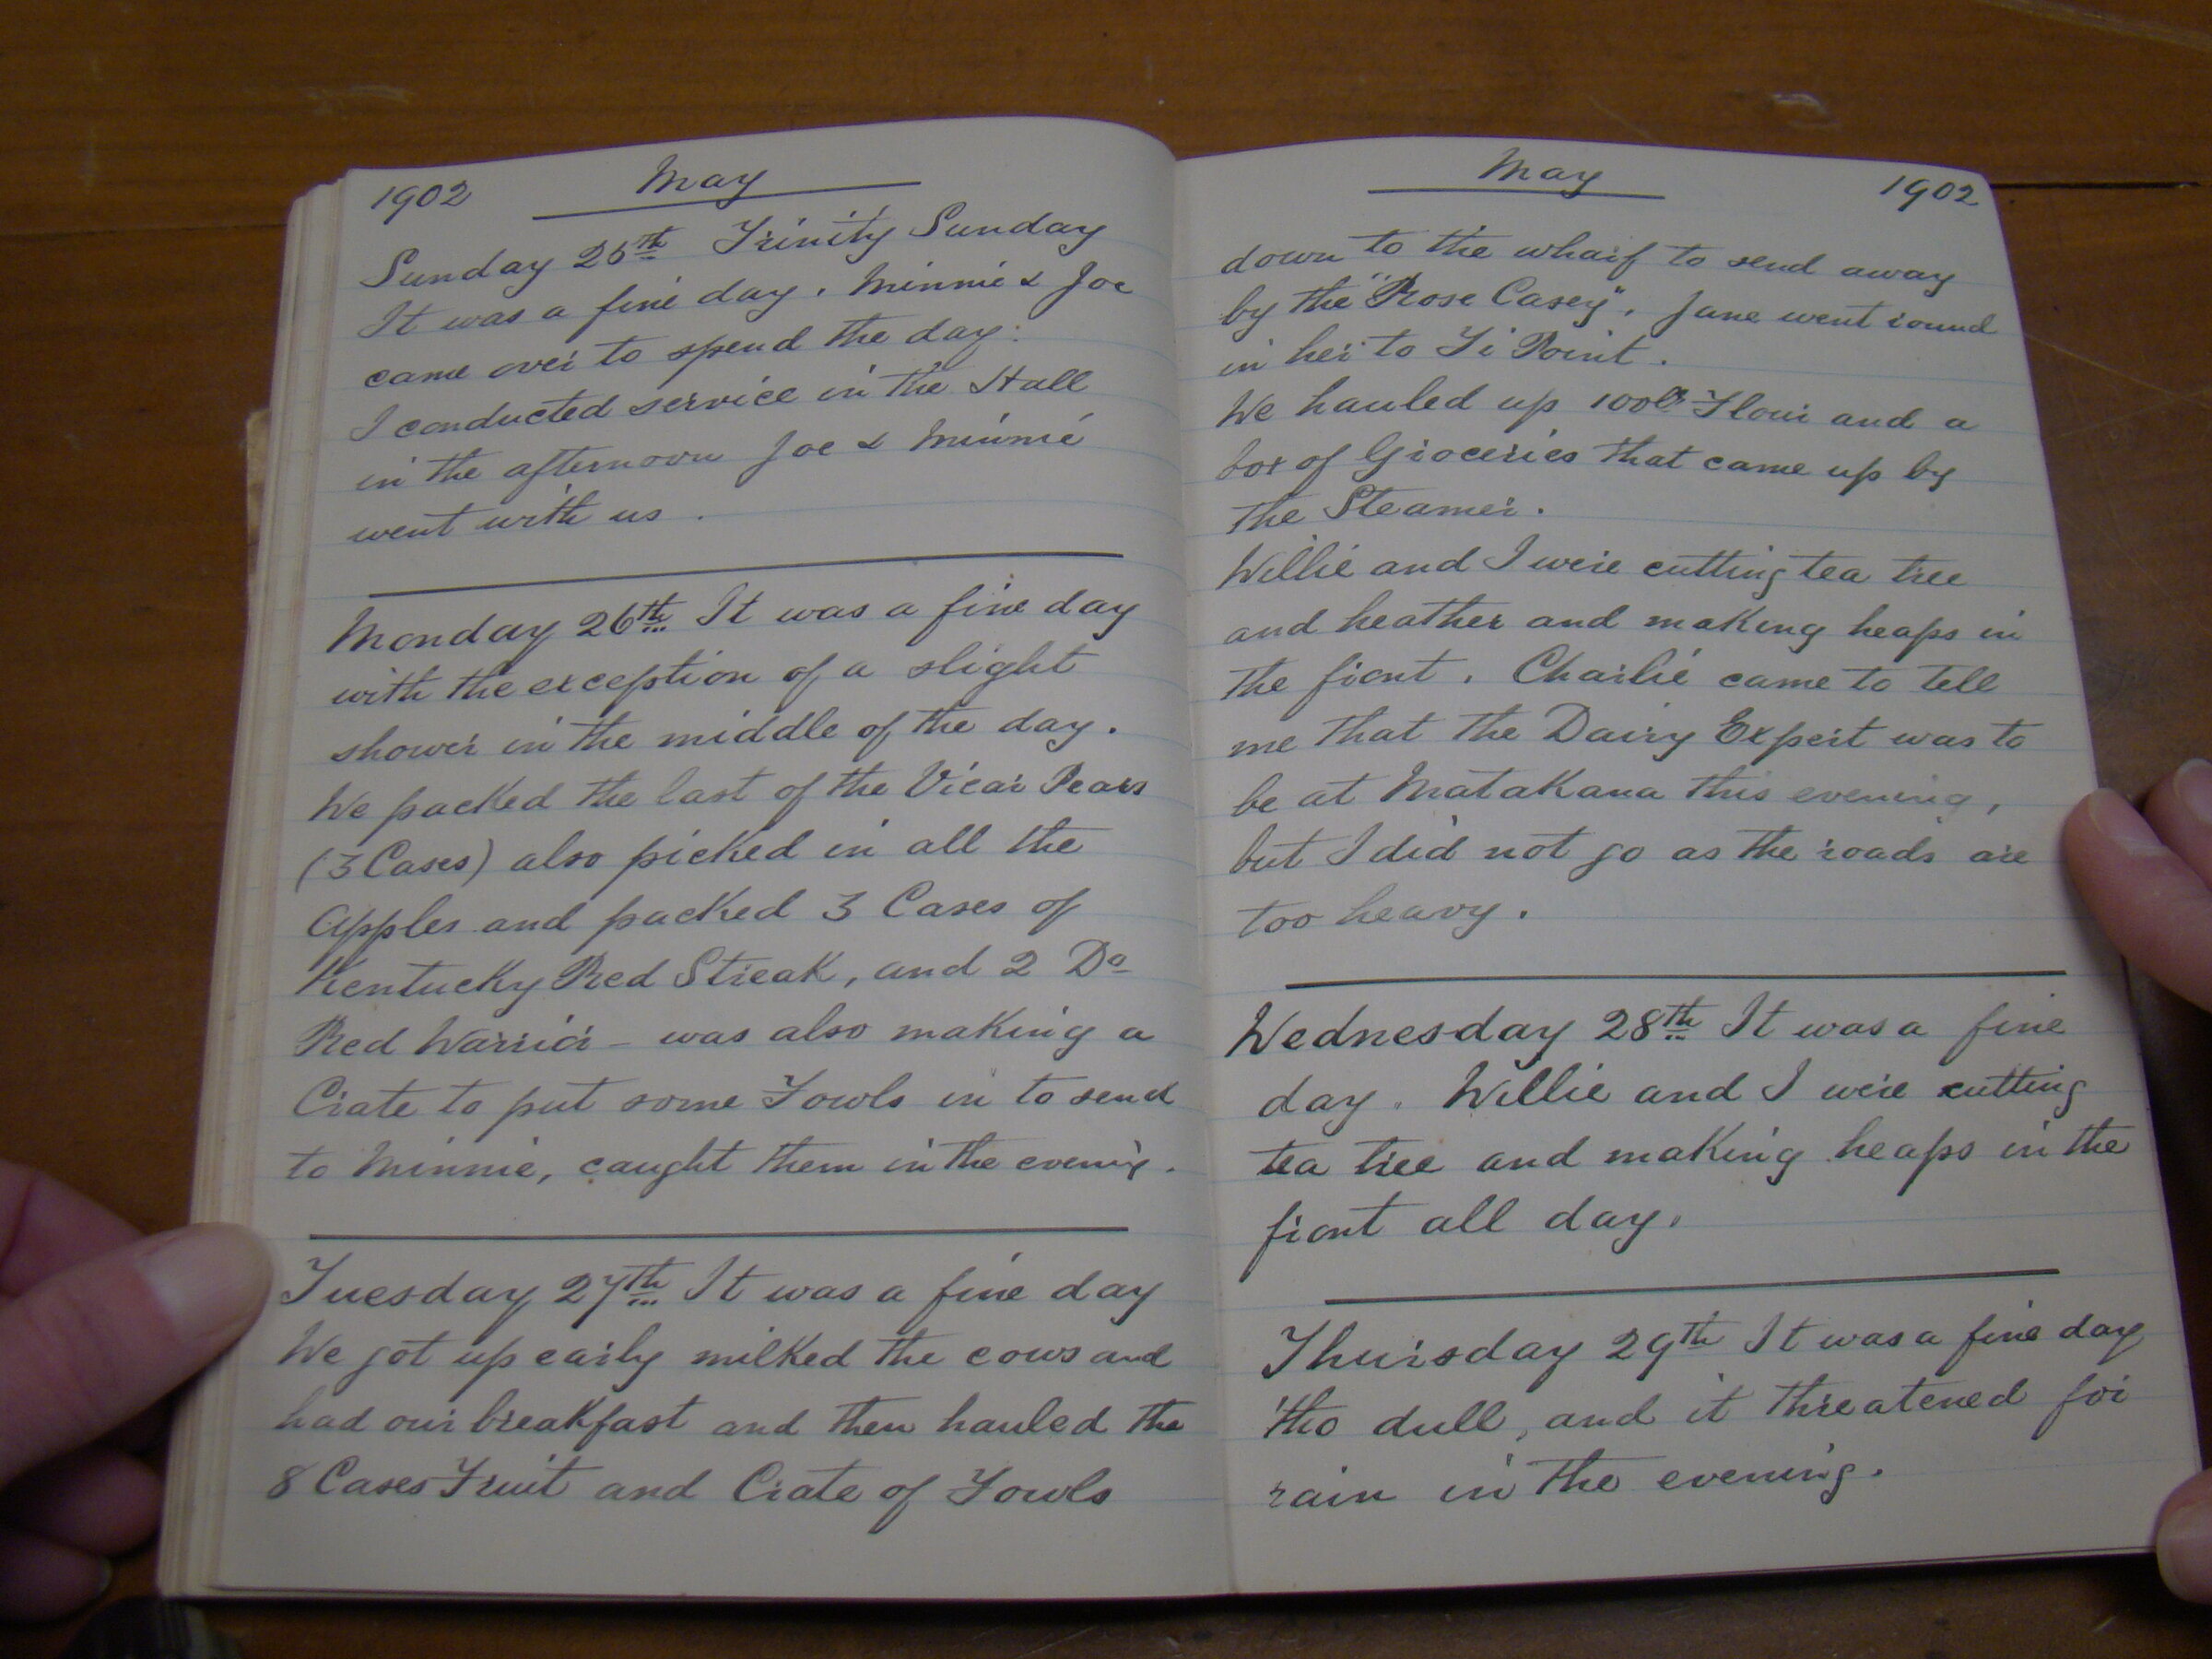 1902 May
Sunday 25th Trinity Sunday
It was a fine day. Minnie & Joe
came over to spend the day.
I conducted service in the Hall
in the afternoon Joe & Minnie
went with us.
Monday 26th It was a fine day
with the exception of a slight
shower in the middle of the day.
We packed the last of the Vicar Pears
(3 Cases) also picked in all the
Apples and packed 3 Cases of
Kentucky Red Streak, and 2 Do
Red Warrior - was also making a
Crate to put some Fowls in to send
to Minnie, caught them in the evening.
Tuesday 27th It was a fine day
We got up early milked the cows and
had our breakfast and then hauled the
8 Cases Fruit and Crate of Fowls
May 1902
down to the wharf to send away
by the "Rose Casey", Jane went round
in her to Ti Point.
We hauled up 100lb Flour and a
box of Groceries that came up by
the Steamer.
Willie and I were cutting tea tree
and heather and making heaps in
the front. Charlie came to tell
me that the Dairy Expert was to
be at Matakana this evening,
but I did not go as the roads are
too heavy.
Wednesday 28th It was a fine
day. Willie and I were cutting
tea tree and making heaps in the
front all day.
Thursday 29th It was a fine day
'tho dull, and it threatened for
rain in the evening.